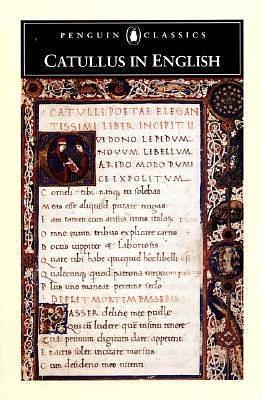 PENGUIN CLASSICS
CATULLUS IN ENGLISH
CATVLLI POETAE ELEGAN
TISSIMI LIBER INCIPIT
VI DONO LEPIDVM
NOVVM LIBELLVM
ARIDO MODO PVMI
CE EXPOLITVM
Corneli tibi nanq; tu solebas
Meas esse aliquid putare nugas
Iam tamen cum ausus unus
Omne euum tribus explicare cartis
Doctis iuppiter & laboriosis
Quare habe tibi quicquid hoc libelli
Qualecunq; quod patrona
Plus uno maneat perenne seclo
DEFLET MORTEM PASSERIS
PASSER delitie mee puelle
Quicum ludere
Cui primum digitum dare
Et acris solet incitare morsus
Cum desiderio meo nitenti